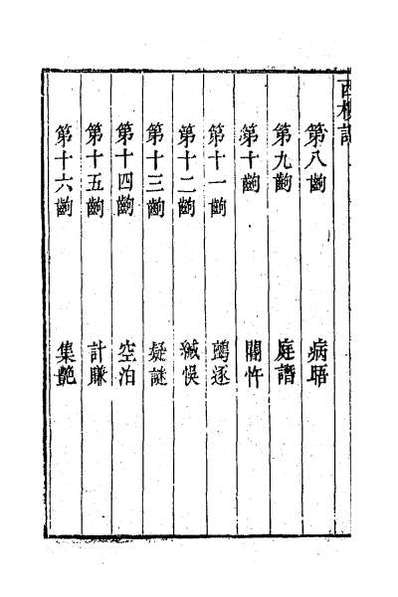 西樓記
第八齣 病晤
第九齣 庭譖
第十齣 閨忤
第十一齣 鴟逐
第十二齣 緘悞
第十三齣 疑謎
第十四齣 空泊
第十五齣 計賺
第十六齣 集艷